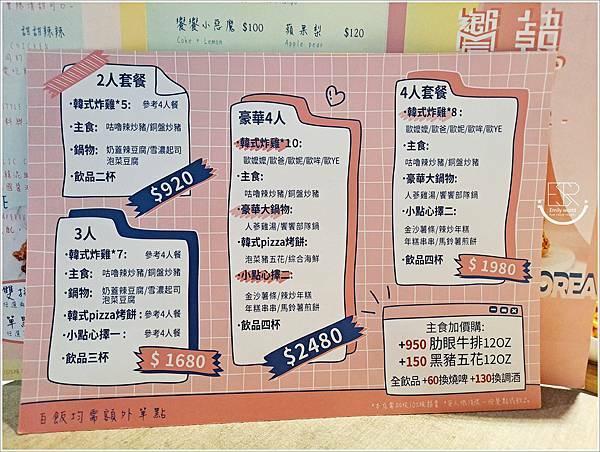 甜甜辣辣
饗饗小惡魔 $100
Coke + Lemon
蘋果梨 $120
Apple pear
饗韓
2人套餐
·韓式炸雞*5: 參考4人餐
·主食: 咕嚕辣炒豬/銅盤炒豬
·鍋物: 奶蓋辣豆腐/雪濃起司
泡菜豆腐
·飲品二杯
$920
3人
·韓式炸雞*7: 參考4人餐
·主食: 咕嚕辣炒豬/銅盤炒豬
·鍋物: 奶蓋辣豆腐/雪濃起司
泡菜豆腐
·韓式pizza烤餅: 參考4人餐
·小點心擇一: 參考4人餐
·飲品三杯
$ 1680
豪華4人
·韓式炸雞*10:
歐嬤嬤/歐爸/歐妮/歐哞/歐YE
·主食:
咕嚕辣炒豬/銅盤炒豬
·豪華大鍋物:
人蔘雞湯/饗饗部隊鍋
·韓式pizza烤餅:
泡菜豬五花/綜合海鮮
·小點心擇二:
金沙薯條/辣炒年糕
年糕串串/馬鈴薯煎餅
·飲品四杯
$2480
4人套餐
·韓式炸雞*8:
歐嬤嬤/歐爸/歐妮/歐哞/歐YE
·主食:
咕嚕辣炒豬/銅盤炒豬
·豪華大鍋物:
人蔘雞湯/饗饗部隊鍋
·小點心擇二:
金沙薯條/辣炒年糕
年糕串串/馬鈴薯煎餅
·飲品四杯
$ 1980
主食加價購:
+950 肋眼牛排12OZ
+150 黑豬五花12OZ
全飲品 +60換燒啤 +130換調酒
白飯均需額外單點
OREA